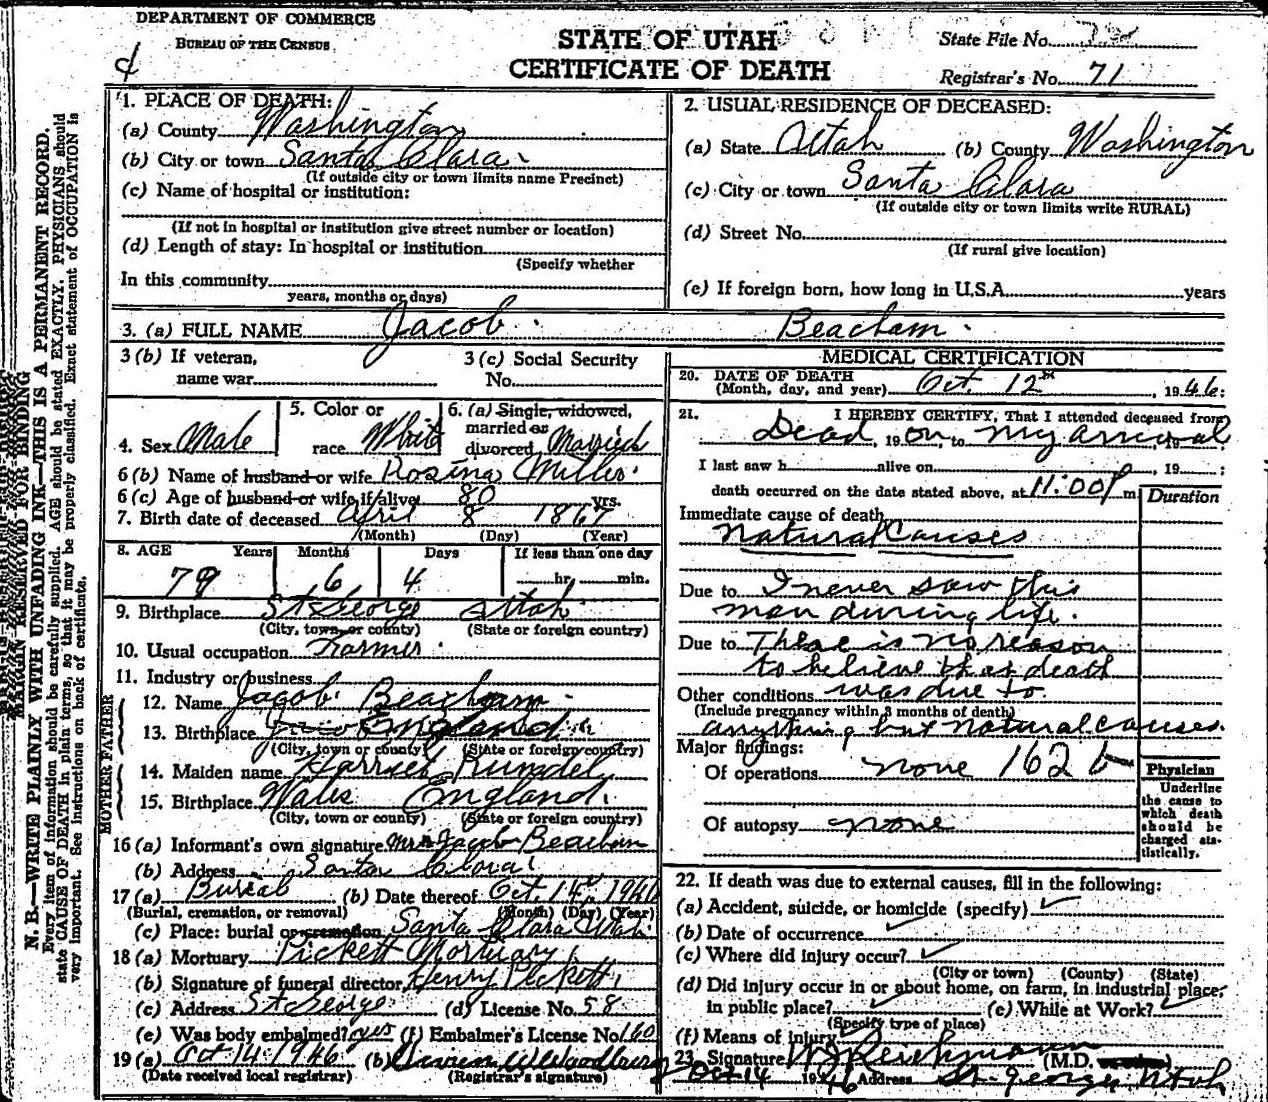 DEPARTMENT OF COMMERCE
BUREAU OF THE CENSUS
STATE OF UTAH
CERTIFICATE OF DEATH
State File No.
Registrar's No. 71
1. PLACE OF DEATH:
(a) County Washington
(b) City or town Santa Clara
(If outside city or town limits name Precinct)
(c) Name of hospital or institution:
(If not in hospital or institution give street number or location)
(d) Length of stay: In hospital or institution
(Specify whether
In this community
years, months or days)
2. USUAL RESIDENCE OF DECEASED:
(a) State Utah (b) County Washington
(c) City or town Santa Clara
(If outside city or town limits write RURAL)
(d) Street No.
(If rural give location)
(e) If foreign born, how long in U.S.A. years
3. (a) FULL NAME Jacob Beacham
3 (b) If veteran, name war
3 (c) Social Security No.
4. Sex Male
5. Color or race White
6. (a) Single, widowed, married or divorced Married
6 (b) Name of husband or wife Rosina Miller
6 (c) Age of husband or wife if alive 80 yrs.
7. Birth date of deceased April 8 1867
(Month) (Day) (Year)
8. AGE Years Months Days If less than one day
79 6 4 hr. min.
9. Birthplace St George Utah
(City, town or county) (State or foreign country)
10. Usual occupation Farmer
11. Industry or business
FATHER
12. Name Jacob Beacham
13. Birthplace England
(City, town or county) (State or foreign country)
MOTHER
14. Maiden name Harriet Rundel
15. Birthplace Wales England
(City, town or county) (State or foreign country)
16 (a) Informant's own signature Mrs Jacob Beacham
(b) Address Santa Clara
17 (a) Burial (b) Date thereof Oct. 14 1946
(Burial, cremation, or removal) (Month) (Day) (Year)
(c) Place: burial or cremation Santa Clara Utah
18 (a) Mortuary Pickett Mortuary
(b) Signature of funeral director Henry Pickett
(c) Address St George (d) License No. 58
(e) Was body embalmed? yes (f) Embalmer's License No. 160
19 (a) Oct 14 1946 (b)
(Date received local registrar) (Registrar's signature)
MEDICAL CERTIFICATION
20. DATE OF DEATH
(Month, day, and year) Oct. 12th, 1946:
21. I HEREBY CERTIFY, That I attended deceased from
Dead, 19 on, to my arrival
I last saw h alive on , 19 ;
death occurred on the date stated above, at 11:00 P m.
Duration
Immediate cause of death
Natural Causes
Due to I never saw this
man during life.
Due to There is no reason
to believe that death
Other conditions was due to
(Include pregnancy within 3 months of death)
anything but natural causes.
Major findings:
Of operations none 162 b
Of autopsy none
Physician
Underline the cause to which death should be charged statistically.
22. If death was due to external causes, fill in the following:
(a) Accident, suicide, or homicide (specify) ✓
(b) Date of occurrence ✓
(c) Where did injury occur? ✓
(City or town) (County) (State)
(d) Did injury occur in or about home, on farm, in industrial place,
in public place? ✓ (e) While at Work? ✓
(Specify type of place)
(f) Means of injury ✓
23. Signature W J Reichmann (M.D.
Oct 14 1946 Address St. George, Utah
MARGIN RESERVED FOR BINDING
N. B.—WRITE PLAINLY WITH UNFADING INK—THIS IS A PERMANENT RECORD.
Every item of information should be carefully supplied. AGE should be stated EXACTLY. PHYSICIANS should
state CAUSE OF DEATH in plain terms, so that it may be properly classified. Exact statement of OCCUPATION is
very important. See instructions on back of certificate.